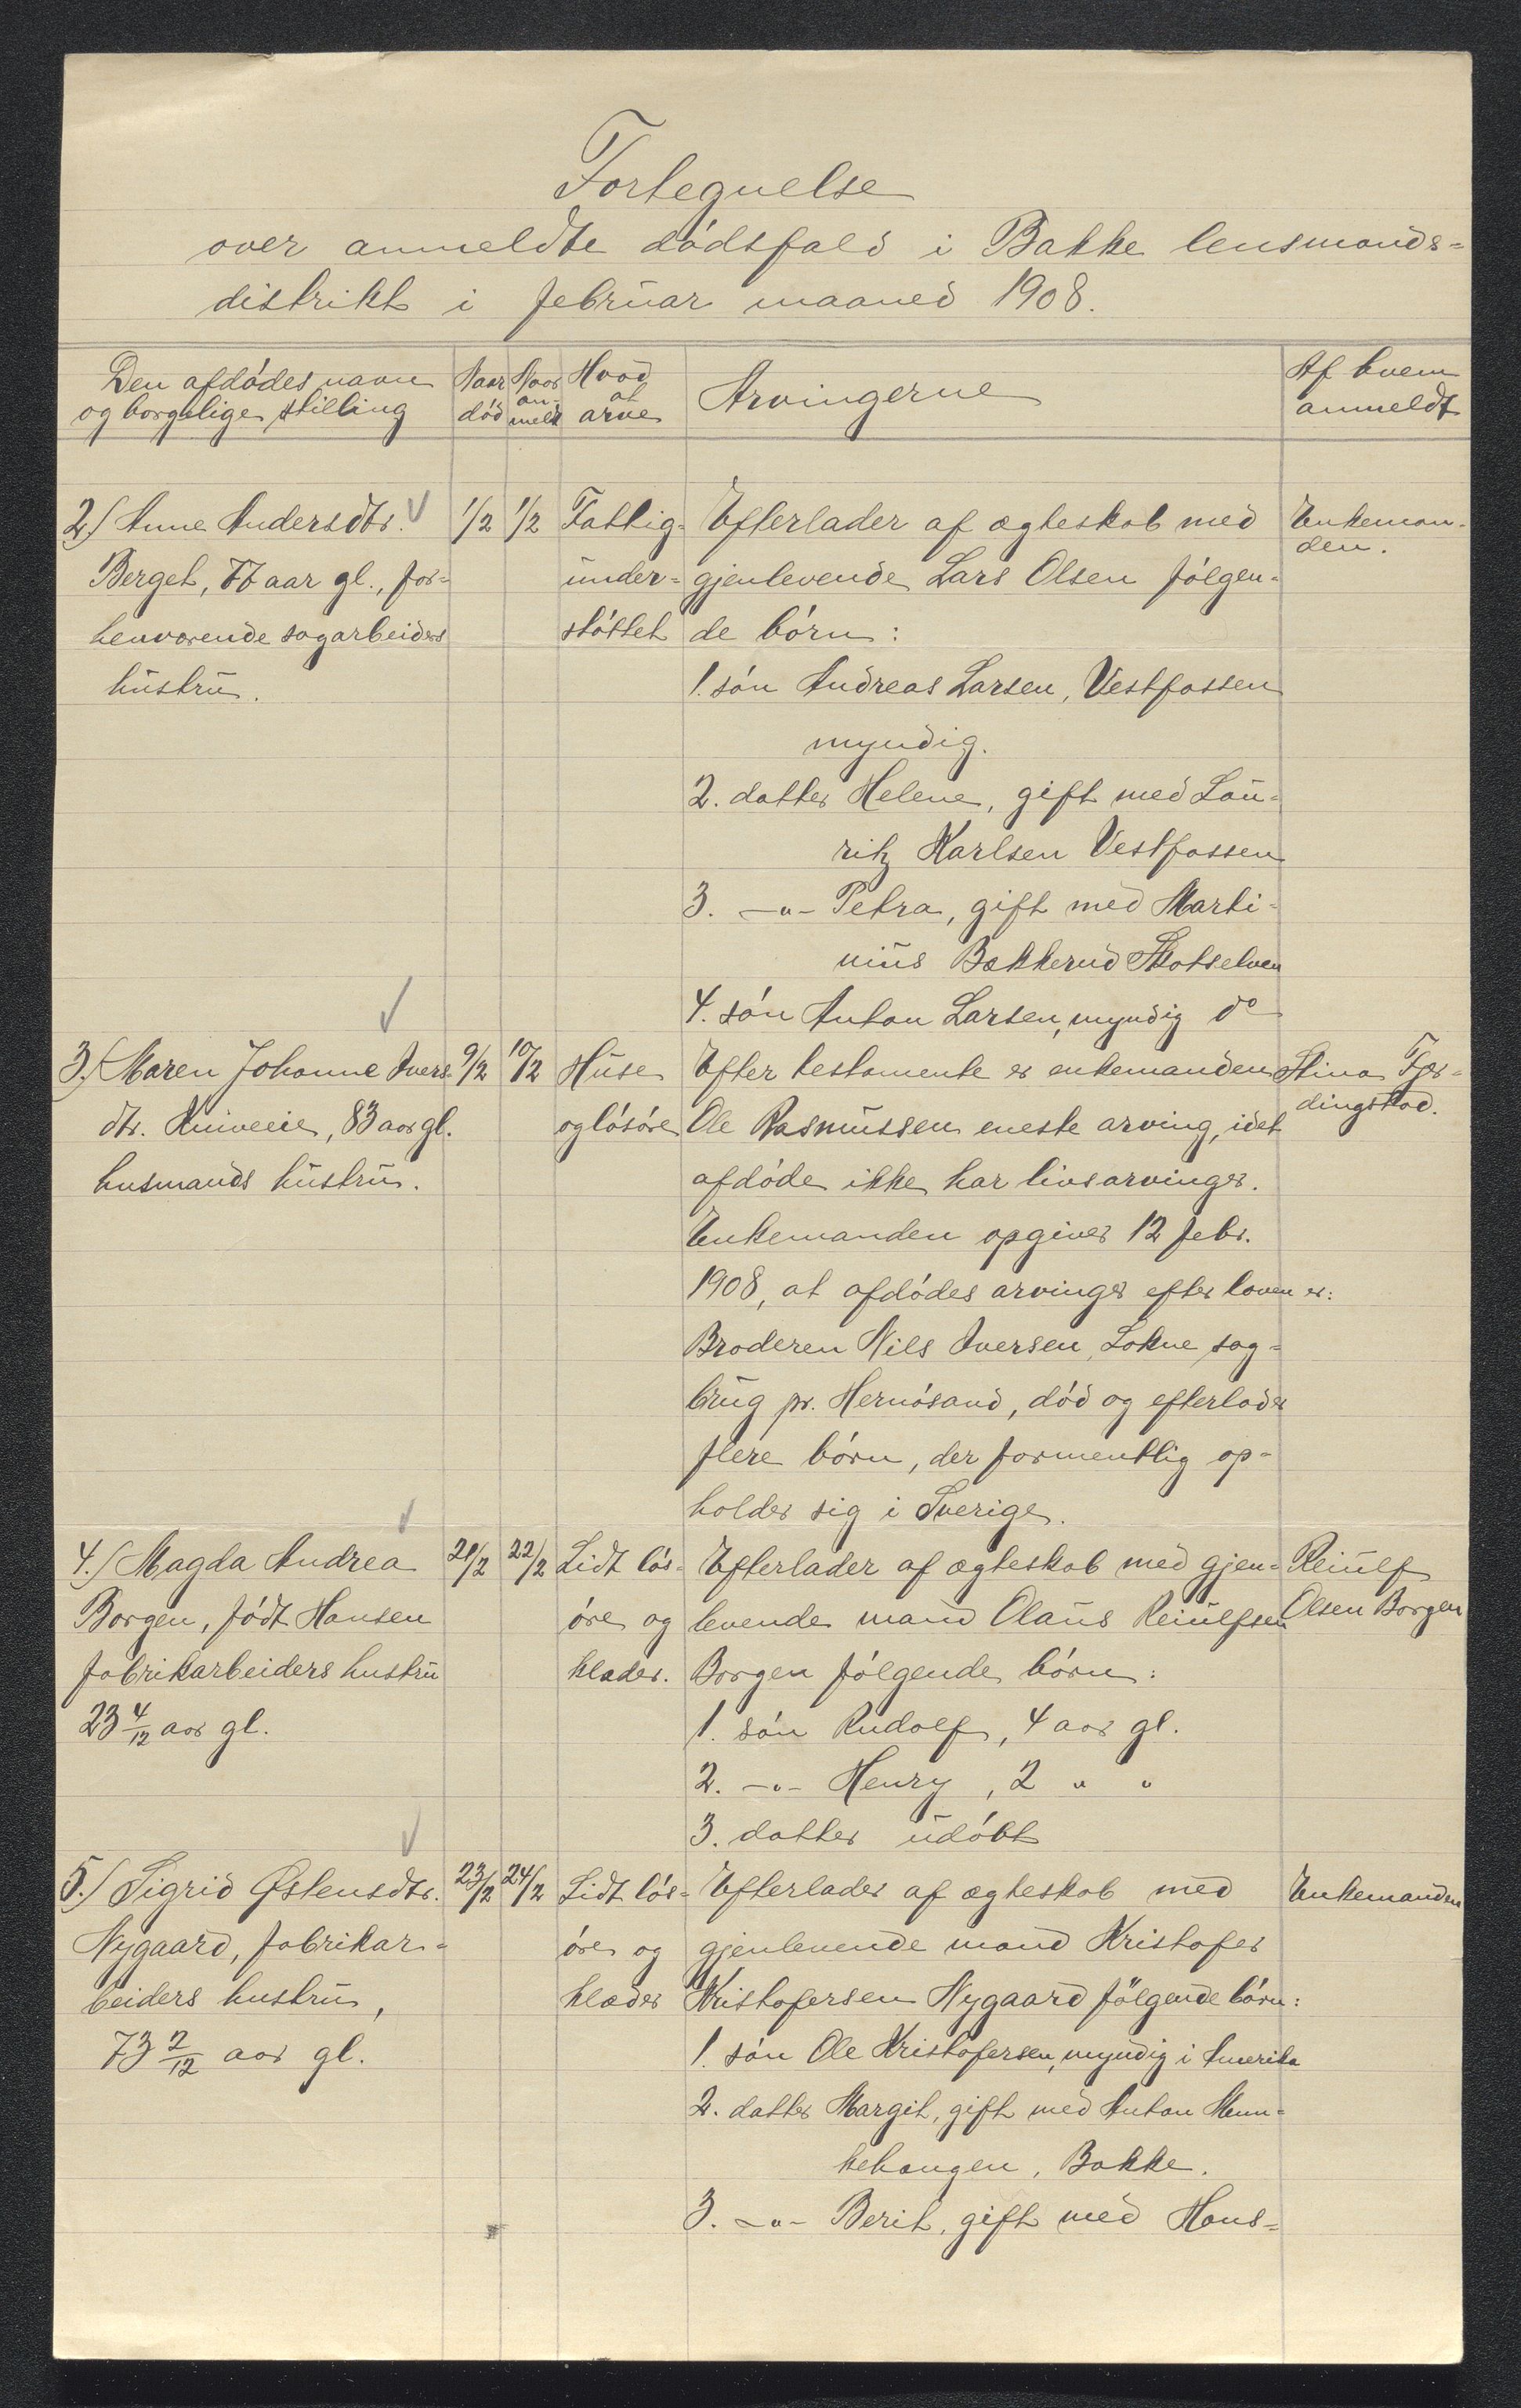 Fortegnelse
over anmeldte dødsfald i Bakke lensmands=
distrikt i februar maaned 1908.
Den afdødes navn
og borgelige stilling
Naar
død
Naar
an-
meldt
Hvad
at
arve
Arvingerne
Af hvem
anmeldt
2.) Anne Andersdtr.
Berget, 77 aar gl., for=
henværende sagarbeiders
hustru.
1/2
1/2
Fattig=
under=
støttet
Efterlader af ægteskab med
gjenlevende Lars Olsen følgen=
de børn:
1. søn Andreas Larsen, Vestfossen
myndig.
2. datter Helene, gift med Lau=
ritz Karlsen Vestfossen
3. —"— Petra, gift med Marti=
nius Bækkerud Skotselven
4. søn Anton Larsen, myndig do
Enkeman=
den.
3.) Maren Johanne Ivers=
dtr. Kniveeie, 83 aar gl.
husmands hustru.
9/2
10/2
Huse
og løsøre
Efter testamente er enkemanden
Ole Rasmussen eneste arving, idet
afdøde ikke har livsarvinger.
Enkemanden opgiver 12 febr.
1908, at afdødes arvinger efter loven er:
Broderen Nils Iversen, Lokne sag=
brug pr. Hernøsand, død og efterlader
flere børn, der formentlig op=
holder sig i Sverige.
Stina Fjer=
dingstad.
4.) Magda Andrea
Borgen, født Hansen
fabrikarbeiders hustru
23 4/12 aar gl.
21/2
22/2
Lidt løs=
øre og
klæder.
Efterlader af ægteskab med gjen=
levende mand Olaus Reiulfsen
Borgen følgende børn:
1. søn Rudolf, 4 aar gl.
2. —"— Henry, 2 " "
3. datter udøbt
Reiulf
Olsen Borgen
5.) Sigrid Østensdtr.
Nygaard, fabrikar=
beiders hustru,
73 2/12 aar gl.
23/2
24/2
Lidt løs=
øre og
klæder
Efterlader af ægteskab med
gjenlevende mand Kristofer
Kristofersen Nygaard følgende børn:
1. søn Ole Kristofersen, myndig i Amerika
2. datter Margit, gift med Anton Mun=
kehaugen, Bakke.
3. —"— Berit, gift med Hans=
Enkemanden